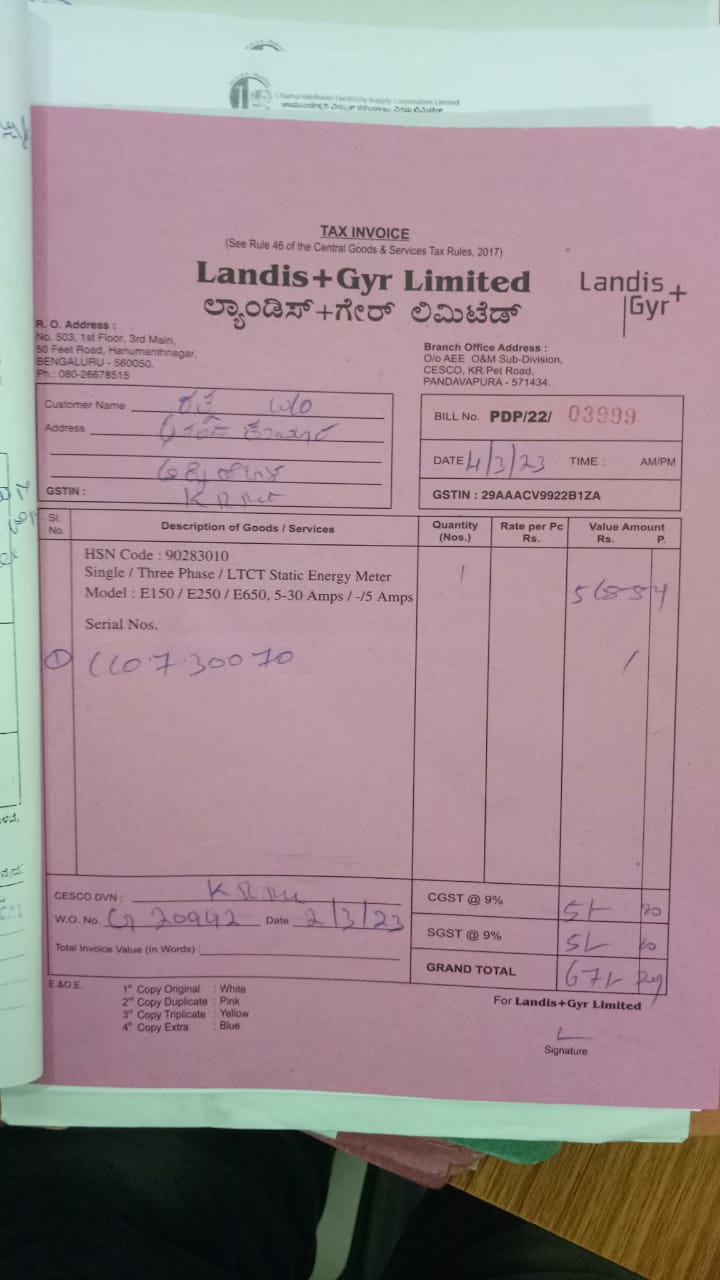 Chamundeshwari Electricity Supply Corporation Limited
ಚಾಮುಂಡೇಶ್ವರಿ ವಿದ್ಯುತ್ ಸರಬರಾಜು ನಿಗಮ ನಿಯಮಿತ
TAX INVOICE
(See Rule 46 of the Central Goods & Services Tax Rules, 2017)
Landis+Gyr Limited
ಲ್ಯಾಂಡಿಸ್+ಗೇರ್ ಲಿಮಿಟೆಡ್
Landis+
Gyr
R. O. Address :
No. 503, 1st Floor, 3rd Main,
50 Feet Road, Hanumanthnagar,
BENGALURU - 560050.
Ph.: 080-26678515
Branch Office Address :
O/o AEE O&M Sub-Division,
CESCO, KR Pet Road,
PANDAVAPURA - 571434.
Customer Name W/O
Address
GSTIN :
BILL No. PDP/22/ 03999
DATE 4/3/23 TIME : AM/PM
GSTIN : 29AAACV9922B1ZA
Sl. No. Description of Goods / Services Quantity (Nos.) Rate per Pc Rs. Value Amount Rs. P.
HSN Code : 90283010
Single / Three Phase / LTCT Static Energy Meter 1
Model : E150 / E250 / E650, 5-30 Amps / -/5 Amps
Serial Nos.
CESCO DVN :
W.O. No. 20992 Date 2/3/23
Total Invoice Value (In Words)
CGST @ 9%
SGST @ 9%
GRAND TOTAL
E.&O.E.
1st Copy Original : White
2nd Copy Duplicate : Pink
3rd Copy Triplicate : Yellow
4th Copy Extra : Blue
For Landis+Gyr Limited
Signature